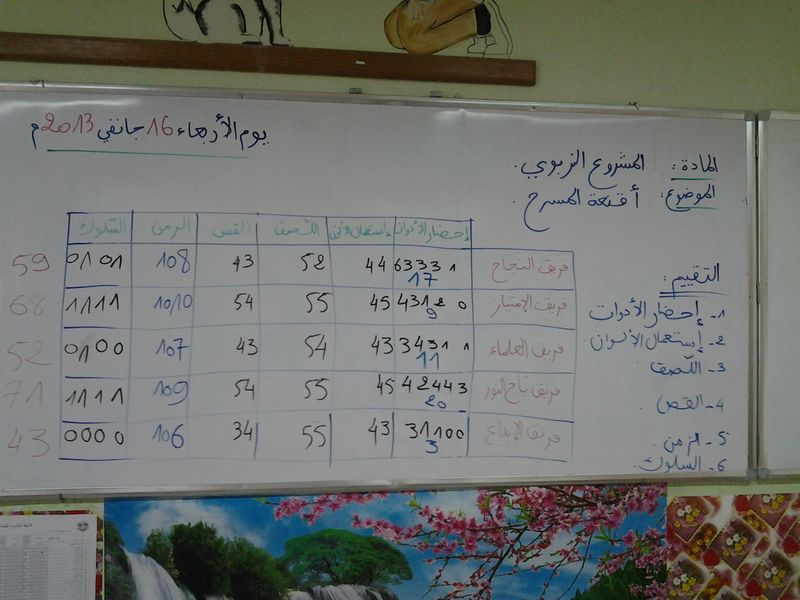 يوم الأربعاء 16 جانفي 2013 م
المادة: المشروع التربوي.
الموضوع: أقنعة المسرح.
إحضار الأدوات إستعمال الألوان اللّصق القص الزمن السّلوك
فريق النجاح 63331 17 44 52 43 108 0101 59
فريق الإمتياز 43120 9 45 55 54 1010 1111 68
فريق العلماء 34311 11 43 54 43 107 0100 52
فريق تاج النور 42443 20 45 55 54 109 1111 71
فريق الإبداع 31100 3 43 55 34 106 0000 43
التقييم:
1- إحضار الأدوات
2- إستعمال الألوان.
3- اللّصق
4- القص.
5- الزمن.
6- السلوك.